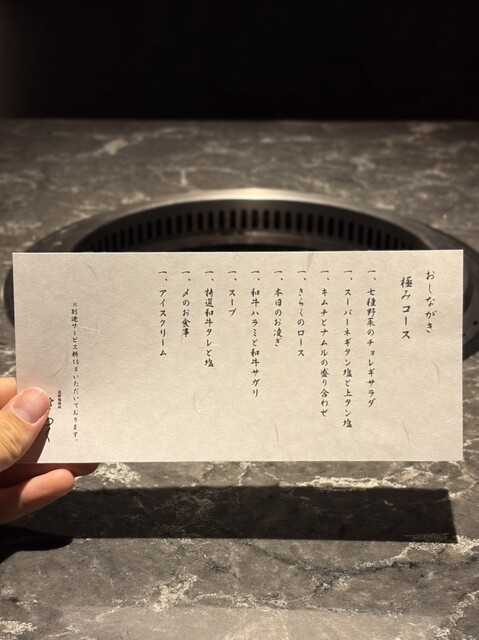 おしながき
極みコース
一、七種野菜のチョレギサラダ
一、スーパーネギタン塩と上タン塩
一、キムチとナムルの盛り合わせ
一、きらくのロース
一、本日のお凌ぎ
一、和牛ハラミと和牛サガリ
一、スープ
一、特選和牛タレと塩
一、〆のお食事
一、アイスクリーム
※別途サービス料10%いただいております。